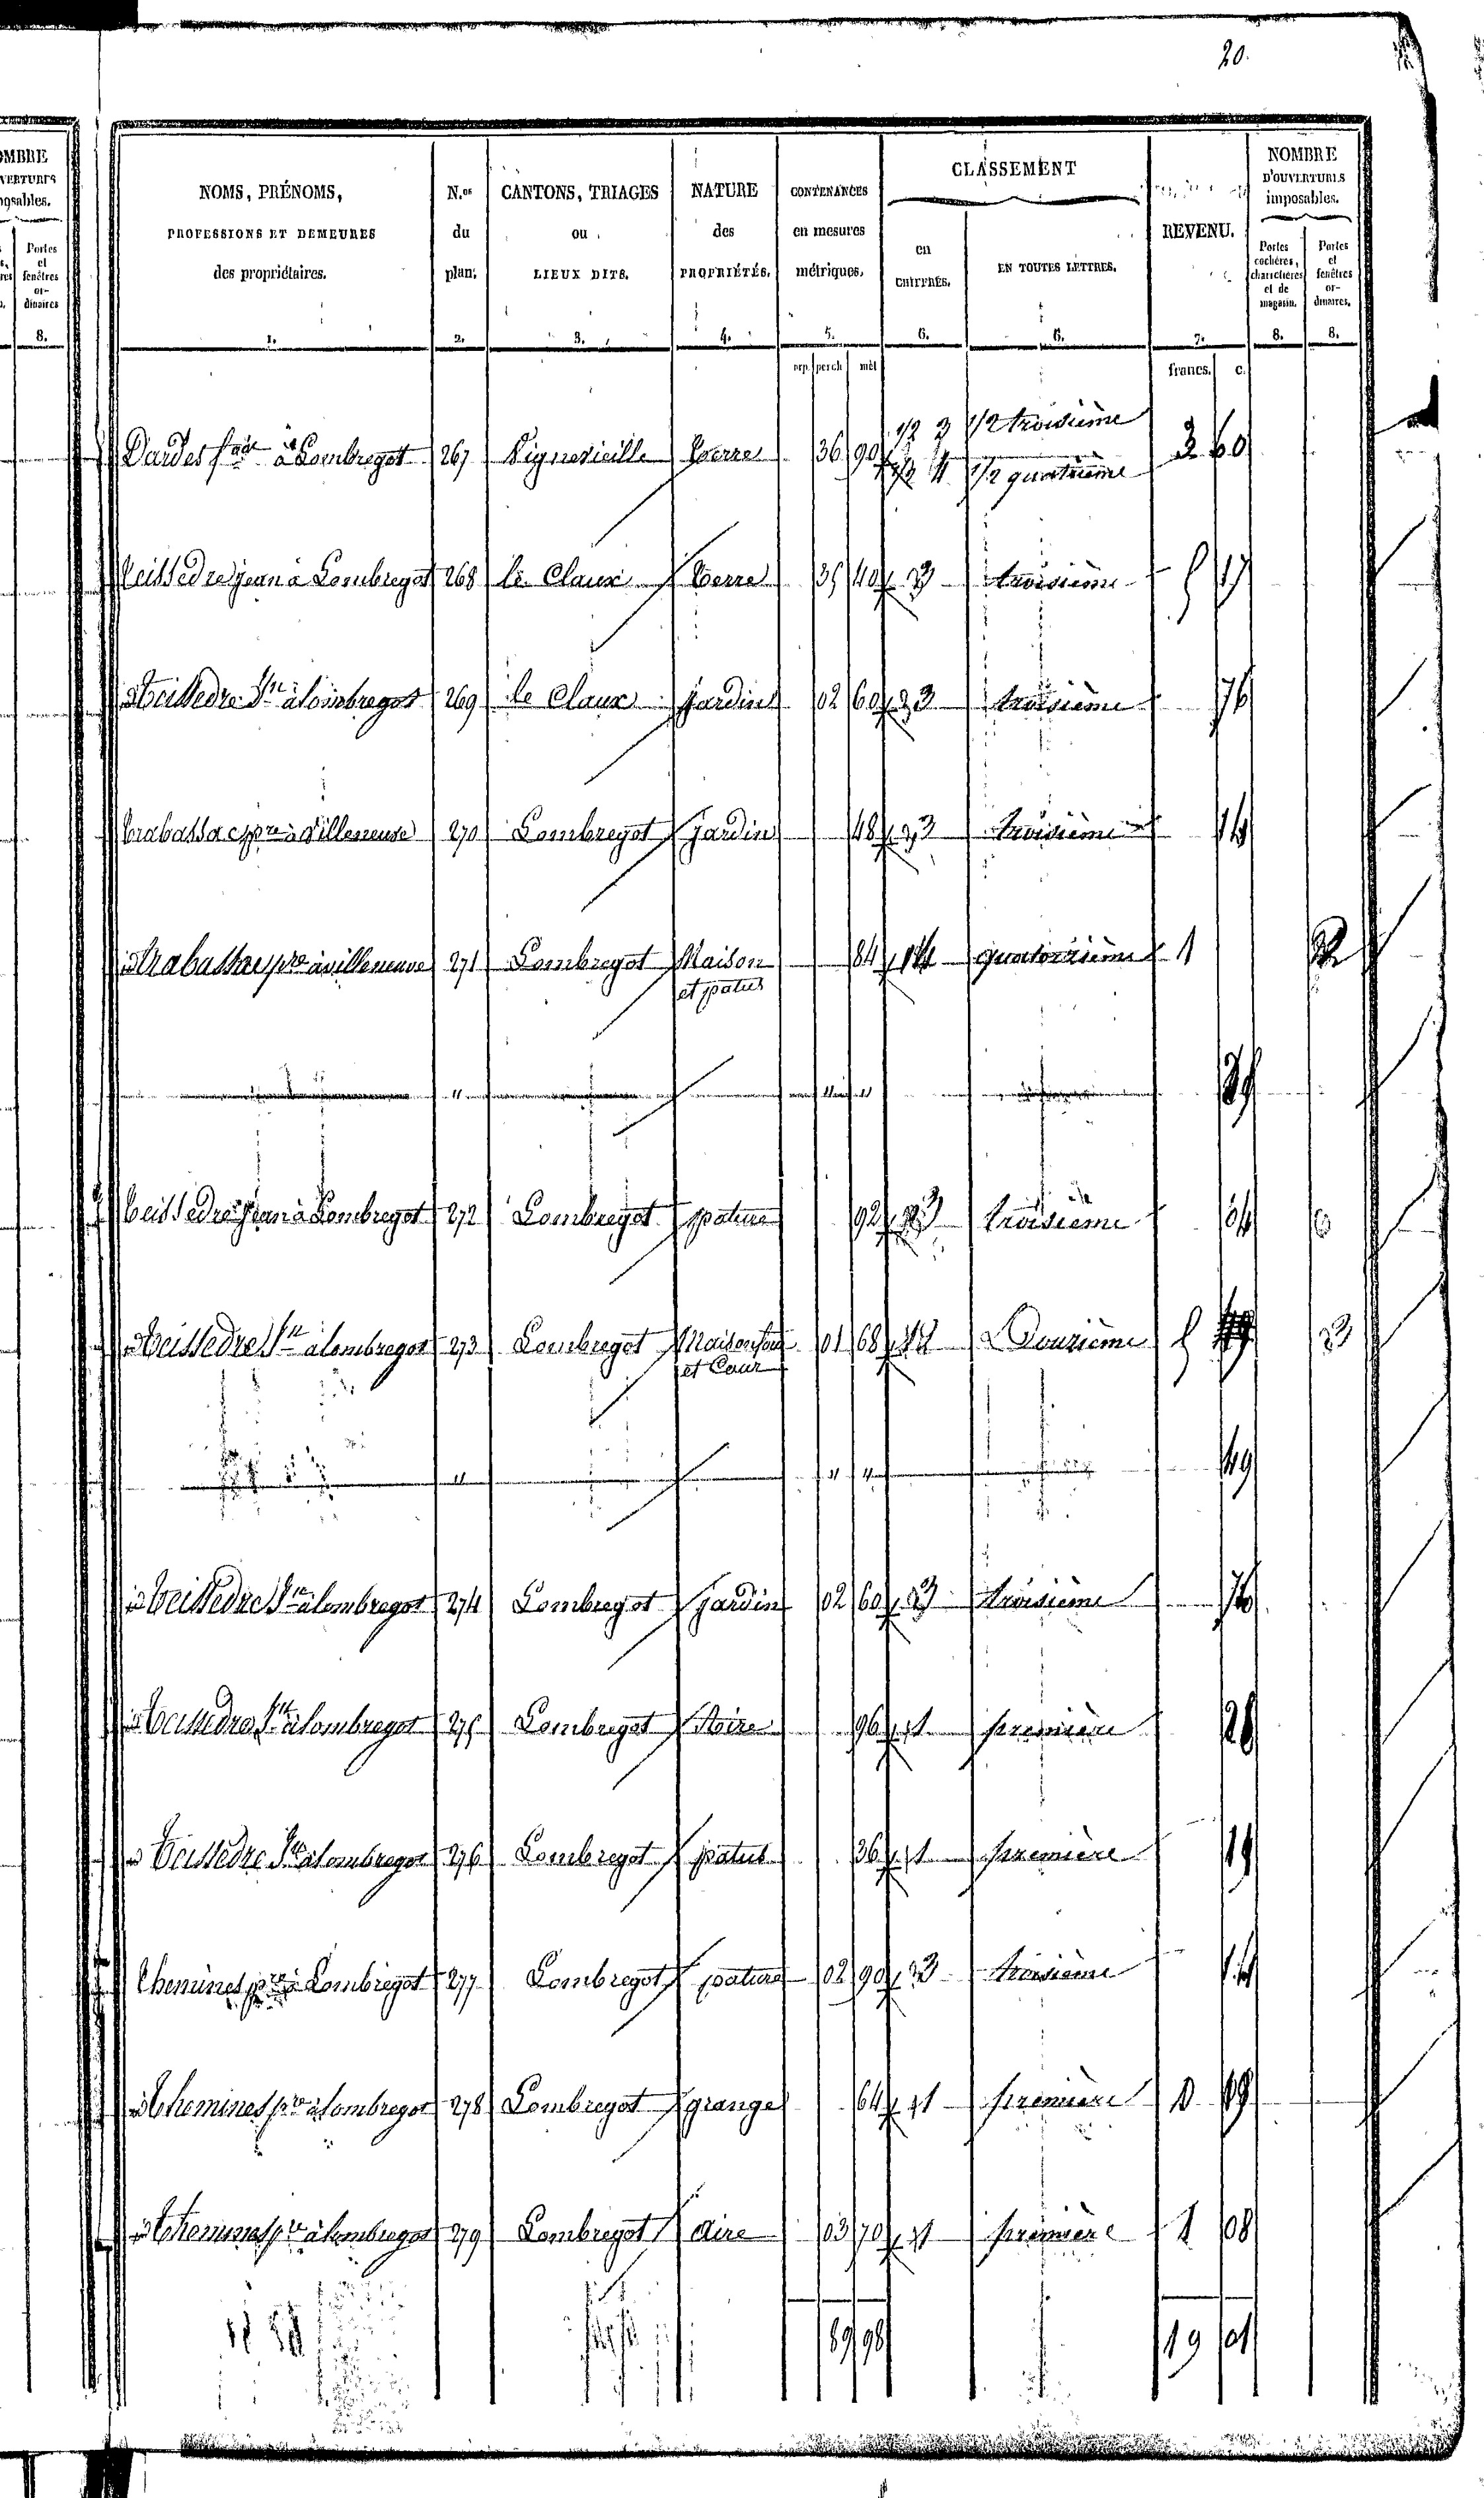 20.
OMBRE
NOMS, PRÉNOMS, PROFESSIONS ET DEMEURES des propriétaires. 1.
N.os du plan. 2.
CANTONS, TRIAGES ou LIEUX DITS. 3.
NATURE des PROPRIÉTÉS. 4.
CONTENANCES en mesures métriques. 5.
CLASSEMENT
en CHIFFRES. 6.
EN TOUTES LETTRES. 6.
REVENU. 7.
NOMBRE D'OUVERTURES imposables.
Portes cochères, charretières et de magasin. 8.
Portes et fenêtres ordinaires. 8.
perch mèt francs. c.
1/2 3 1/2 troisième
à Lombregot 267 Vignevieille Terre 36 90 60
1/2 4 1/2 quatrième
Teissedre jean à Lombregot 268 le Claux Terre 35 40 3 troisième 5 17
Teissedre à lombregot 269 le Claux jardin 02 60 3 troisième 76
pre à Villeneuve 270 Lombregot jardin 48 3 troisième 14
pre à villeneuve 271 Lombregot Maison 84 14 quatorzième 1 2
et patus
Teissedre jean à Lombregot 272 Lombregot pature 92 3 troisième 04
Teissedre à lombregot 273 Lombregot Maison 01 68 Douzième 3
et Cour
49
Teissedre à lombregot 274 Lombregot jardin 02 60 3 troisième 76
Teissedre à lombregot 275 Lombregot Aire 96 1 première 28
Teissedre à lombregot 276 Lombregot patus 36 1 première
Themines pre à Lombregot 277 Lombregot pature 02 90 3 troisième 14
Themines pre à lombregot 278 Lombregot grange 64 1 première
Themines pre à lombregot 279 Lombregot aire 03 70 1 première 1 08
89 98 19 01